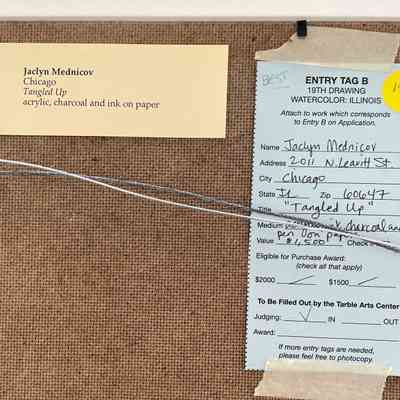 Jaclyn Mednicov
Chicago
Tangled Up
acrylic, charcoal and ink on paper
BEST
ENTRY TAG B
19TH DRAWING
WATERCOLOR: ILLINOIS
Attach to work which corresponds
to Entry B on Application.
Name Jaclyn Mednicov
Address 2011 N. Leavitt St.
City Chicago
State IL Zip 60647
Title "Tangled Up"
Medium ink, charcoal and
pen on paper
Value $1,500 Check
Eligible for Purchase Award:
(check all that apply)
$2000 $1500
To Be Filled Out by the Tarble Arts Center
Judging: IN OUT
Award:
If more entry tags are needed,
please feel free to photocopy.